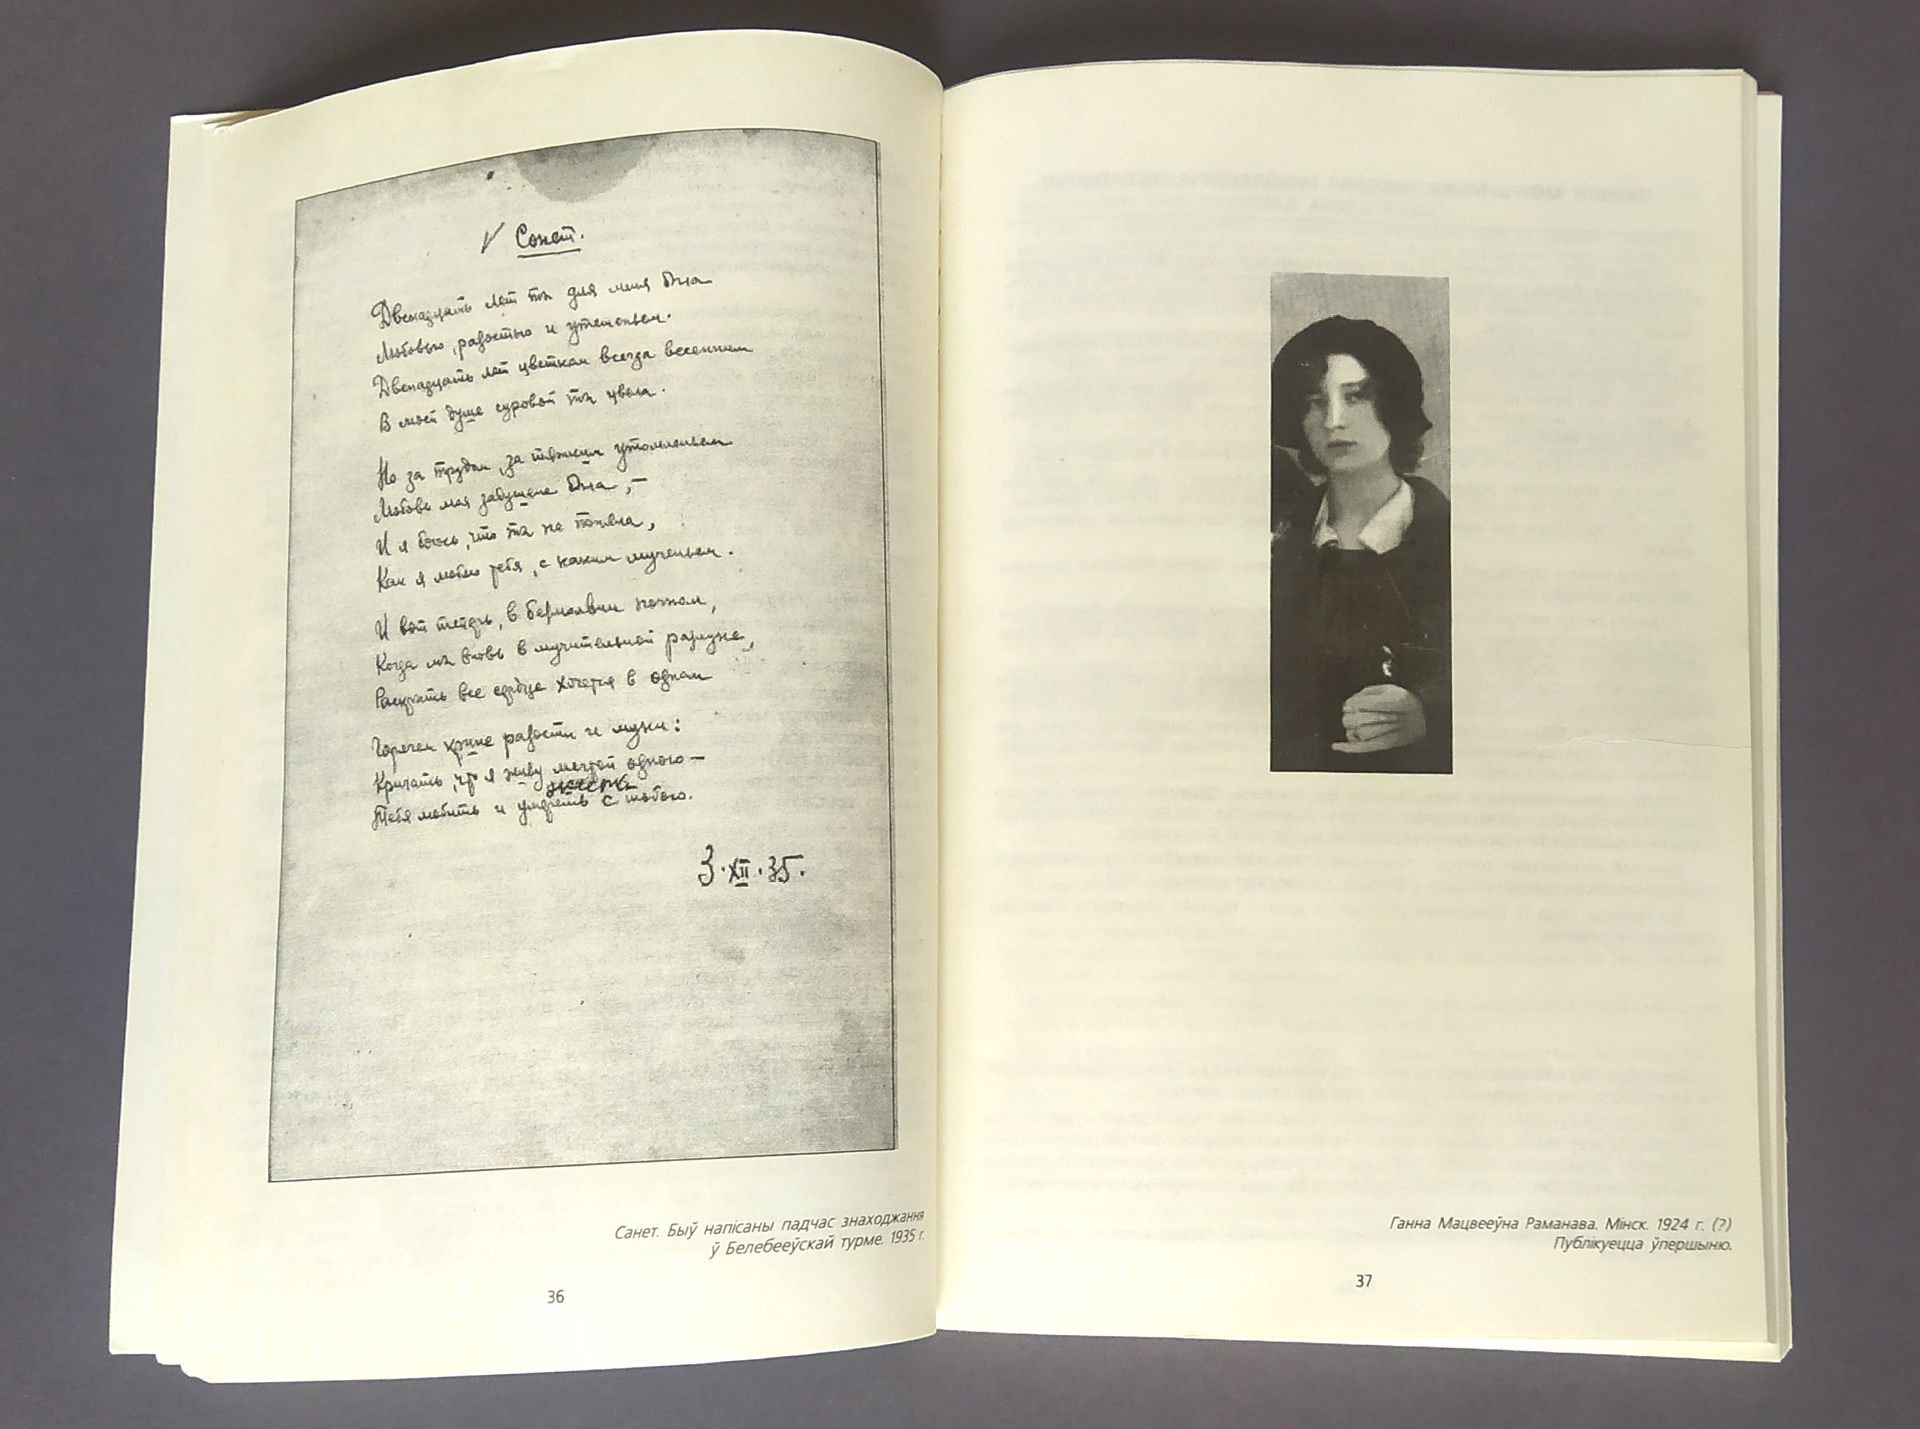 Сонет.
Двенадцать лет ты для меня была
Любовью, радостью и утешеньем.
Двенадцать лет цветком всегда весенним
В моей душе суровой ты цвела.
Но за трудом, за тяжким утомленьем
Любовь моя задушена была, —
И я боюсь, что ты не поняла,
Как я люблю тебя, с каким мученьем.
И вот теперь, в безмолвии ночном,
Когда мы вновь в мучительной разлуке,
Раскрыть все сердце хочется в одном
Горячем крике радости и муки:
Кричать, что я живу мечтой одною —
Тебя любить и умереть с тобою.
3.XII.35.
Санет. Быў напісаны падчас знаходжання
ў Белебееўскай турме. 1935 г.
36
Ганна Мацвееўна Раманава. Мінск. 1924 г. (?)
Публікуецца ўпершыню.
37